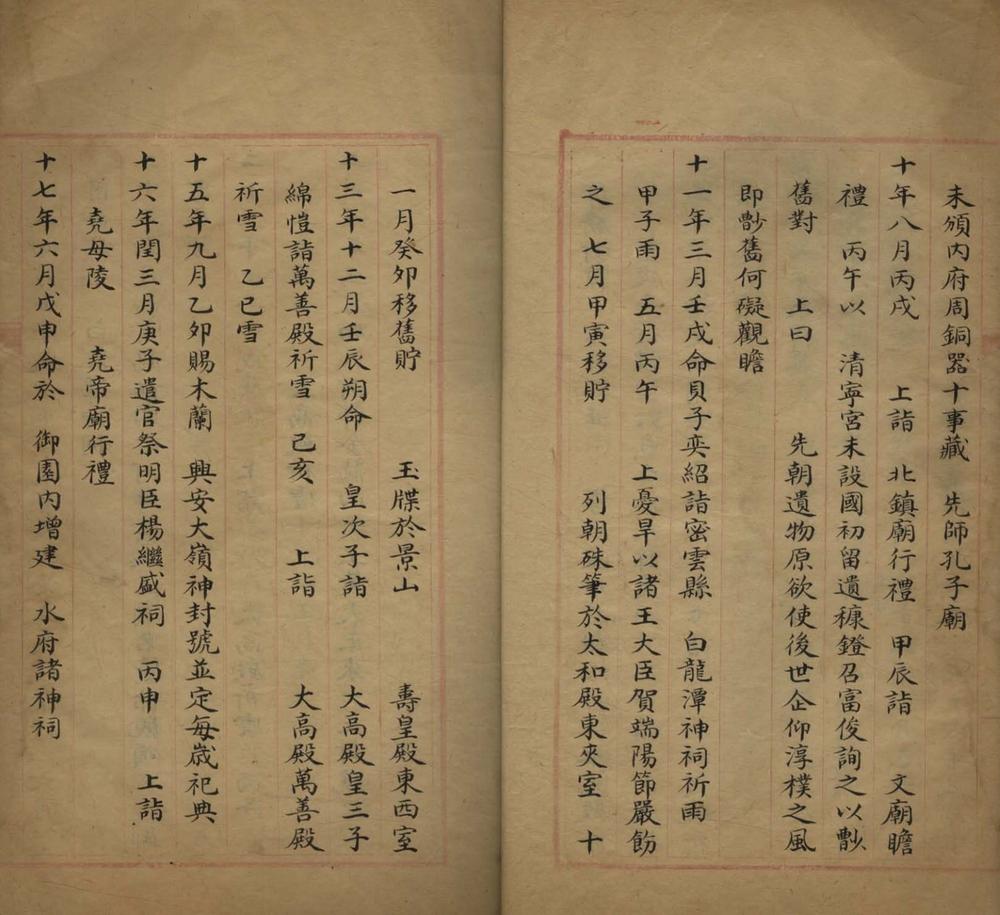 未頒內府周銅器十事藏　先師孔子廟
十年八月丙戌　上詣　北鎮廟行禮　甲辰詣　文廟瞻
禮　丙午以　清寧宮未設國初留遺糠鐙召富俊詢之以黪
舊對　上曰　先朝遺物原欲使後世企仰淳樸之風
即黪舊何礙觀瞻
十一年三月壬戌命貝子奕紹詣密雲縣　白龍潭神祠祈雨
甲子雨　五月丙午　上憂旱以諸王大臣賀端陽節嚴飭
之　七月甲寅移貯　列朝硃筆於太和殿東夾室　十
一月癸卯移舊貯　玉牒於景山　壽皇殿東西室
十三年十二月壬辰朔命　皇次子詣　大高殿皇三子
綿愷詣萬善殿祈雪　己亥　上詣　大高殿萬善殿
祈雪　乙巳雪
十五年九月乙卯賜木蘭　興安大嶺神封號並定每歲祀典
十六年閏三月庚子遣官祭明臣楊繼盛祠　丙申　上詣
堯母陵　堯帝廟行禮
十七年六月戊申命於　御園內增建　水府諸神祠